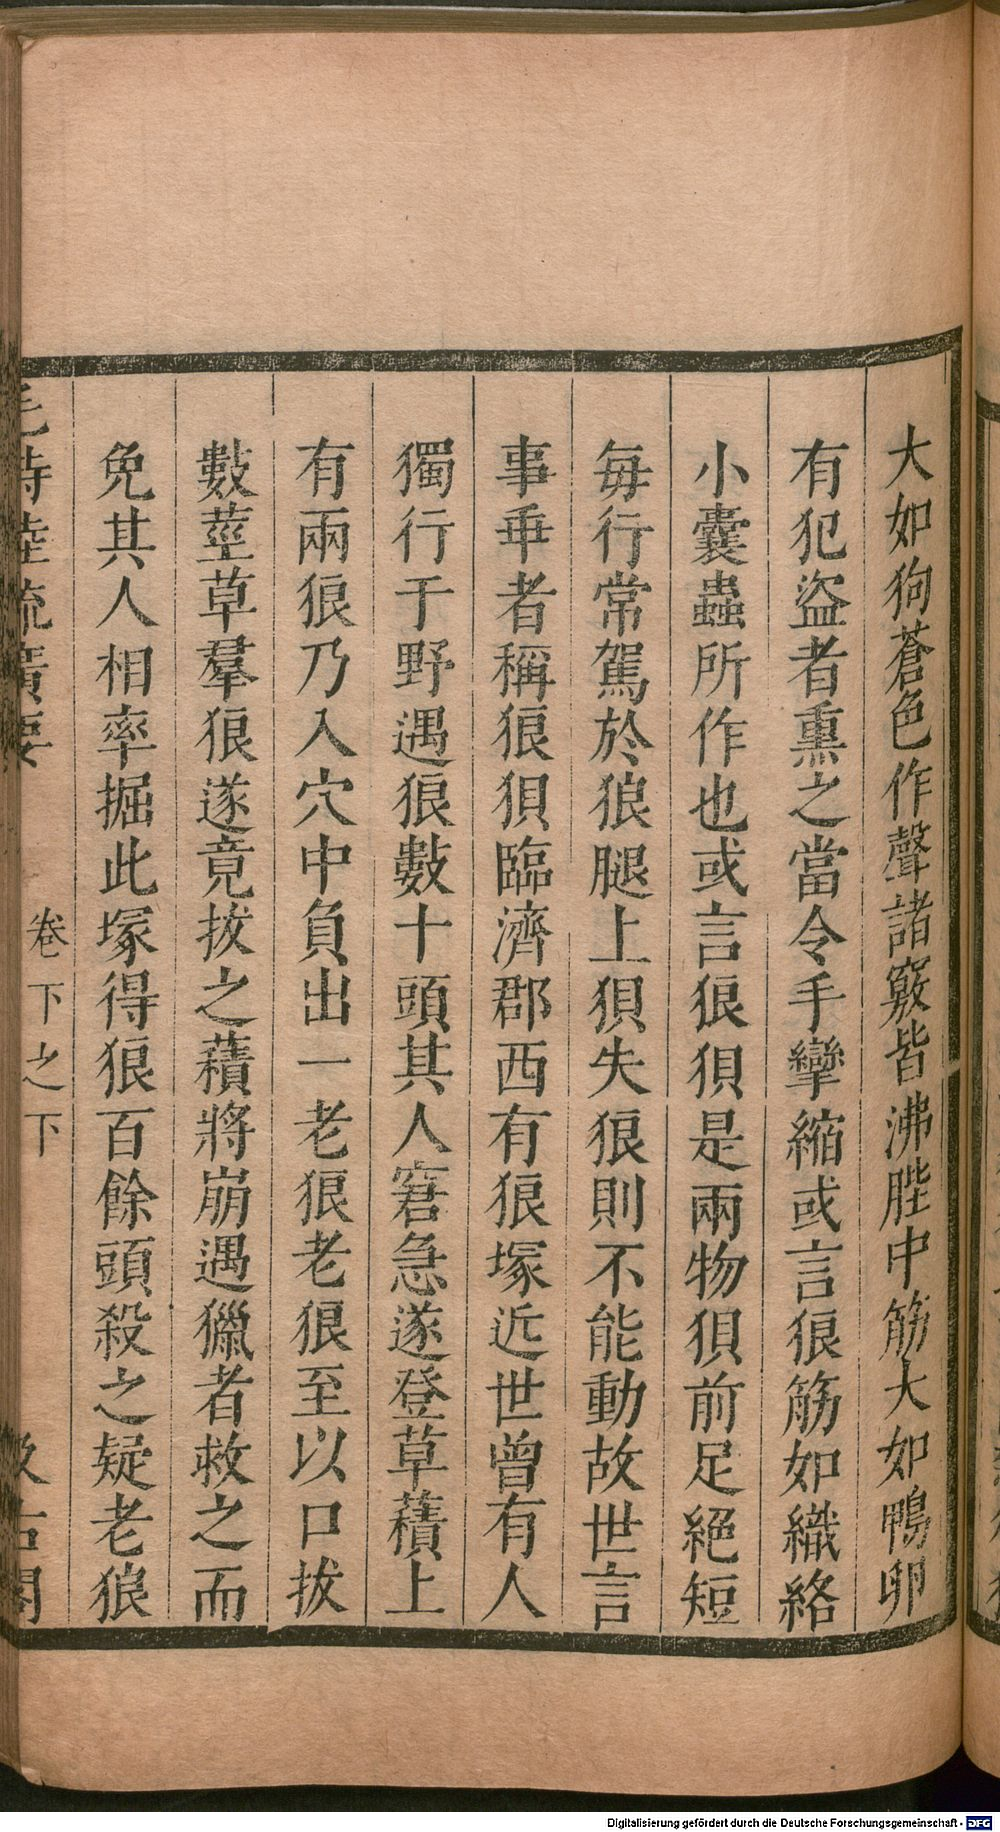 大如狗蒼色作聲諸竅皆沸䏶中筋大如鴨卵
有犯盜者熏之當令手攣縮或言狼筋如織絡
小囊蟲所作也或言狼狽是兩物狽前足絕短
毎行常駕於狼腿上狽失狼則不能動故世言
事乖者稱狼狽臨濟郡西有狼塚近世曾有人
獨行于野遇狼數十頭其人窘急遂登草𧂐上
有兩狼乃入穴中負出一老狼老狼至以口拔
數莖草羣狼遂竟拔之𧂐將崩遇獵者救之而
免其人相率掘此塚得狼百餘頭殺之疑老狼
毛詩陸疏廣要
卷下之下
汲古閣
Digitalisierung gefördert durch die Deutsche Forschungsgemeinschaft - DFG